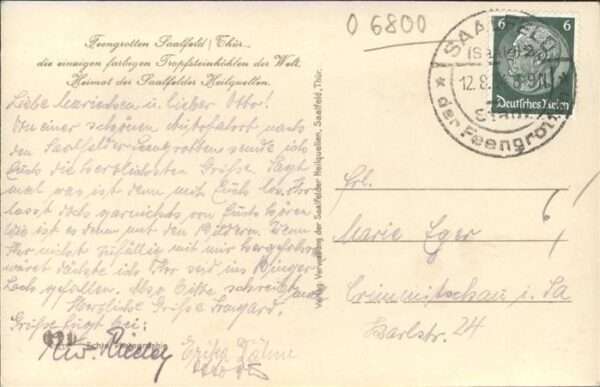 O 6800
Feengrotten Saalfeld/Thür.
die einzigen farbigen Tropfsteinhöhlen der Welt.
Heimat der Saalfelder Heilquellen.
SAALFELD
(Saale) 2
12.8.
der Feengrotten
6 6
Deutsches Reich
Liebe Mariechen u. lieber Otto!
Von einer schönen Autofahrt nach
den Saalfelder Feengrotten sende ich
Euch die herzlichsten Grüße. Sagt
mal was ist denn mit Euch los. Ihr
lasst doch garnichts von Euch hören
wie ist es denn mit den Bildern. Wenn
Ihr nicht zufällig mit mir
wäret dächte ich Ihr seid ins Binger
Loch gefallen. Also bitte schreibt
Herzliche Grüße Irmgard.
Grüße fügt bei:
Echte Photographie
Erika
Verlag Verwaltung der Saalfelder Heilquellen, Saalfeld, Thür.
Frl.
Marie Eger
Crimmitschau i. Sa
Carlstr. 24